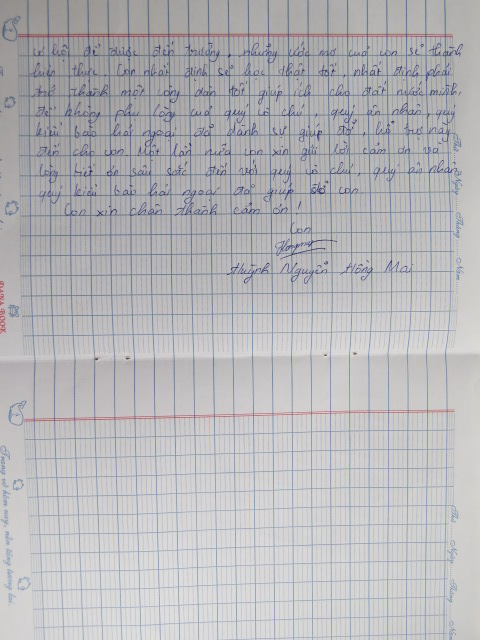 cơ hội để được đến trường, những ước mơ của con sẽ thành
hiện thực. Con nhất định sẽ học thật tốt, nhất định phải
trở thành một công dân tốt giúp ích cho đất nước mình.
để không phụ lòng của quý cô chú, quý ân nhân, quý
kiều bào hải ngoại đã dành sự giúp đỡ, hỗ trợ này
đến cho con. Một lần nữa con xin gửi lời cảm ơn và
lòng biết ơn sâu sắc đến với quý cô chú, quý ân nhân
quý kiều bào hải ngoại đã giúp đỡ con.
Con xin chân thành cảm ơn!
Con
Huỳnh Nguyễn Hồng Mai
Thứ Ngày Tháng Năm
BOOK
Trang vở hôm nay, nền tảng tương lai
Thứ Ngày Tháng Năm